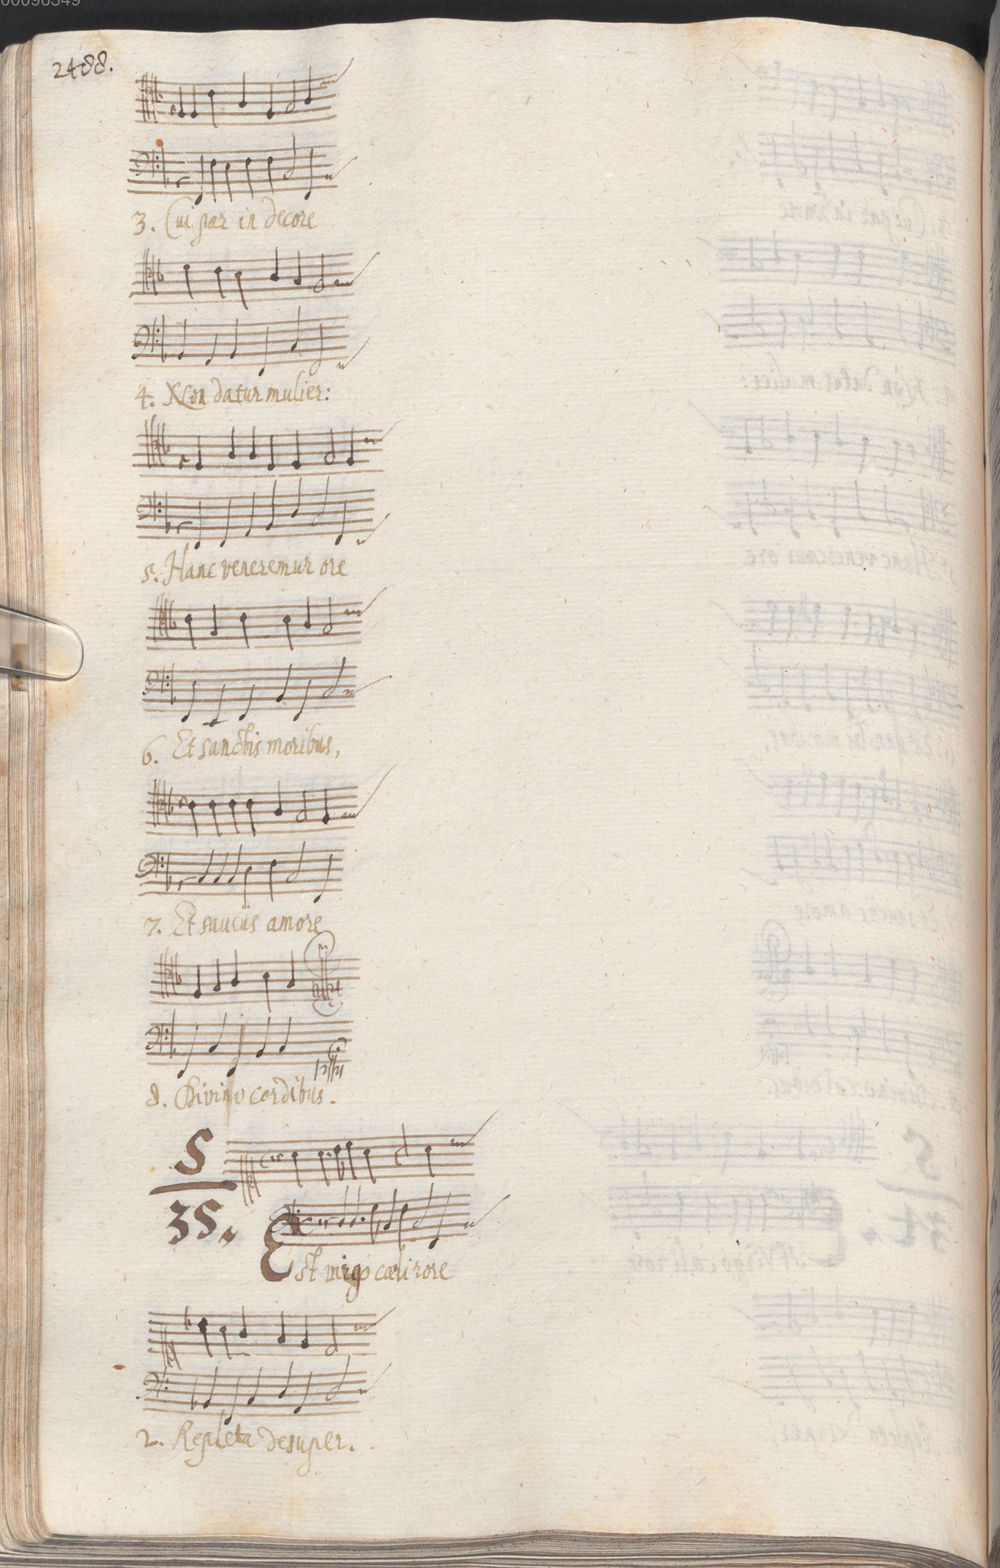 00096349
2488.
3. Cui par in decore
4. Non datur mulier:
5. Hanc veneremur ore
6. Et sanctis moribus,
7. Et suavis amore
8. Divino cordibus.
S
35.
Est virgo cæli rore
2. Repleta desuper.